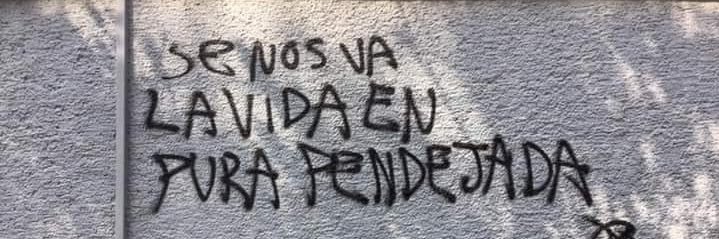 Se NOS VA
LA VIDA EN
PURA PENDEJADA